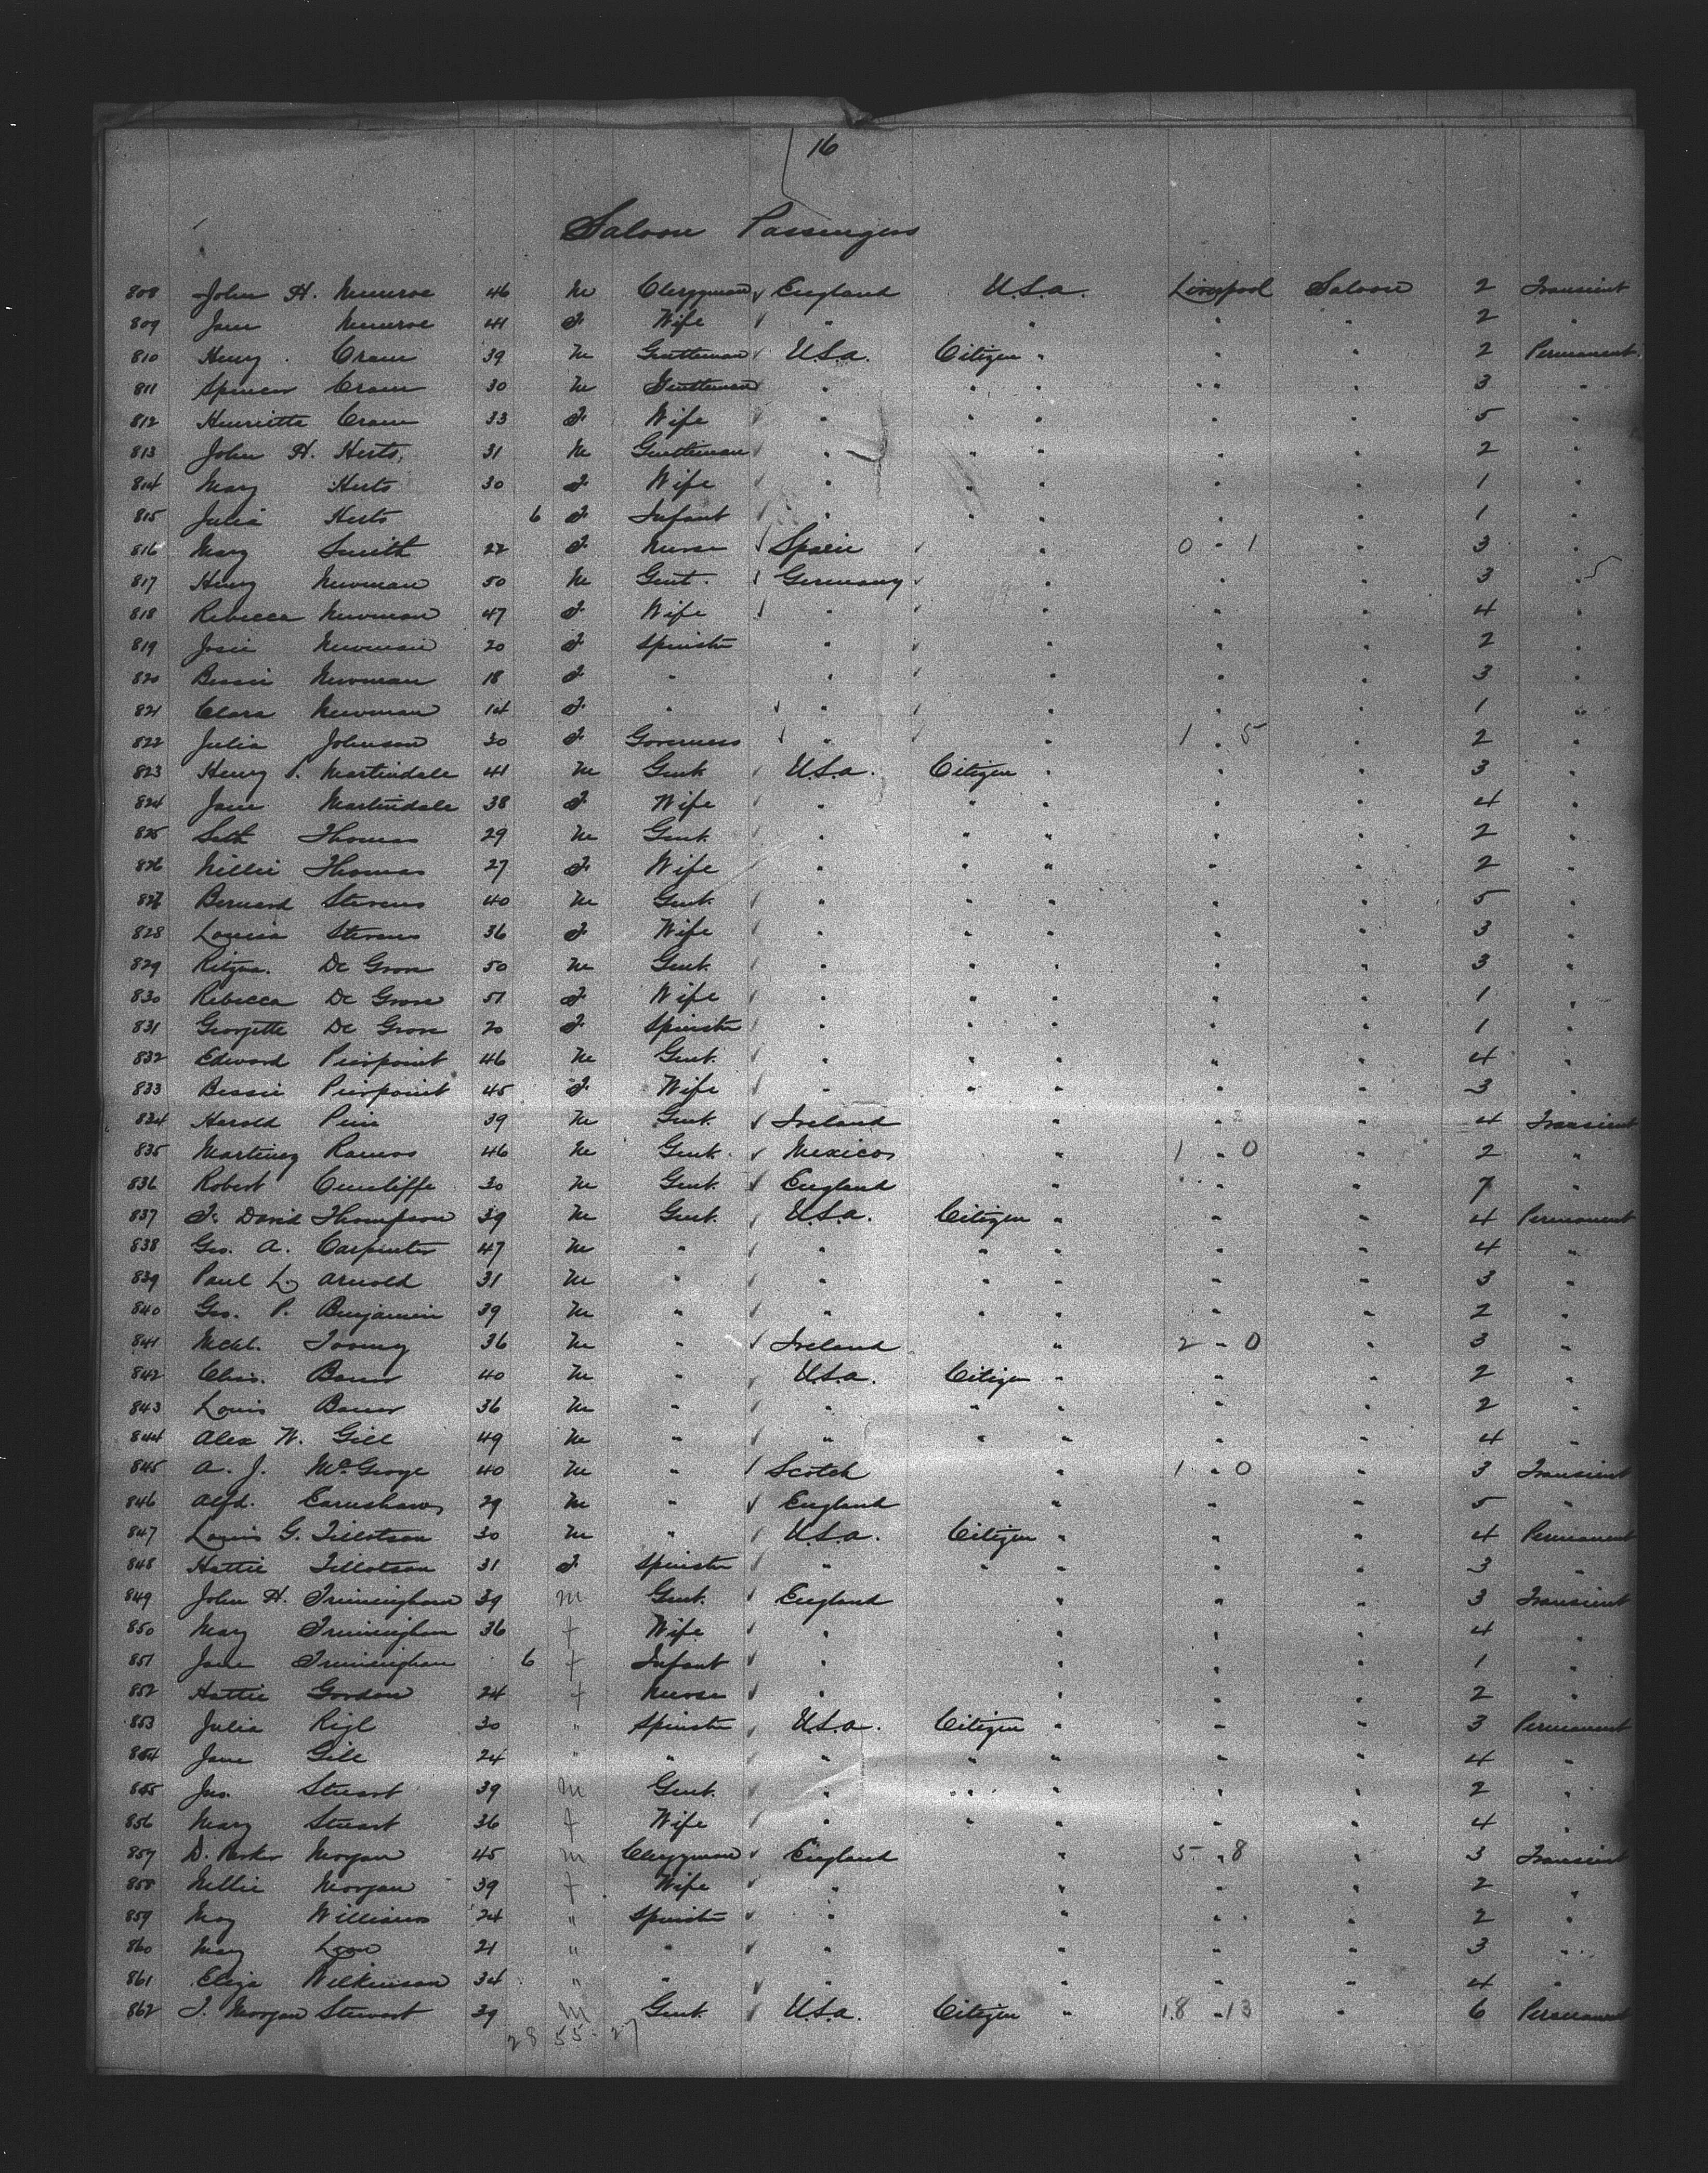 16
Saloon Passengers
808 John H. Munroe 46 M Clergyman England U.S.A. Liverpool Saloon 2 Transient
809 Jane Munroe 41 F Wife " " " " 2 "
810 Henry Crane 39 M Gentleman U.S.A. Citizen " " " 2 Permanent
811 Spencer Crane 30 M Gentleman " " " " " 3 "
812 Henrietta Crane 33 F Wife " " " " " 5 "
813 John H. Herts 31 M Gentleman " " " " " 2 "
814 Mary Herts 30 F Wife " " " " " 1 "
815 Julia Herts 6 F Infant " " " " " 1 "
816 Mary Smith 22 F Nurse Spain " 0 " 1 " 3 "
817 Henry Newman 50 M Gent. Germany " " " 3 "
818 Rebecca Newman 47 F Wife " " " " 4 "
819 Josie Newman 20 F Spinster " " " " 2 "
820 Bessie Newman 18 F " " " " " 3 "
821 Clara Newman 14 F " " " " " 1 "
822 Julia Johnson 30 F Governess " " 1 " 5 " 2 "
823 Henry P. Martindale 41 M Gent. U.S.A. Citizen " " " 3 "
824 Jane Martindale 38 F Wife " " " " " 4 "
825 Seth Thomas 29 M Gent. " " " " " 2 "
826 Nellie Thomas 27 F Wife " " " " " 2 "
827 Bernard Stevens 40 M Gent. " " " " " 5 "
828 Louisa Stevens 36 F Wife " " " " " 3 "
829 De Grove 50 M Gent. " " " " " 3 "
830 Rebecca De Grove 51 F Wife " " " " " 1 "
831 Georgette De Grove 20 F Spinster " " " " " 1 "
832 Edward Pierpoint 46 M Gent. " " " " " 4 "
833 Bessie Pierpoint 45 F Wife " " " " " 3 "
834 Harold Pim 39 M Gent. Ireland " " " 4 Transient
835 Martinez Ramos 46 M Gent. Mexico " 1 " 0 " 2 "
836 Robert Cunliffe 30 M Gent. England " " " 7 "
837 F. David Thompson 39 M Gent. U.S.A. Citizen " " " 4 Permanent
838 Geo. A. Carpenter 47 M " " " " " " 4 "
839 Paul L. Arnold 31 M " " " " " " 3 "
840 Geo. P. Benjamin 39 M " " " " " " 2 "
841 Mchl. Toomy 36 M " Ireland " 2 " 0 " 3 "
842 Chas. Bauer 40 M " U.S.A. Citizen " " " 2 "
843 Louis Bauer 36 M " " " " " " 2 "
844 Alex W. Gill 49 M " " " " " " 4 "
845 A. J. McGeorge 40 M " Scotch " 1 " 0 " 3 Transient
846 Alfd. Earnshaw 29 M " England " " " 5 "
847 Louis G. Tillotson 30 M " U.S.A. Citizen " " " 4 Permanent
848 Hattie Tillotson 31 F Spinster " " " " " 3 "
849 John H. Trimingham 39 M Gent. England " " " 3 Transient
850 Mary Trimingham 36 f Wife " " " " 4 "
851 Jane Trimingham 6 f Infant " " " " 1 "
852 Hattie Gordon 24 f Nurse " " " " 2 "
853 Julia Rigl 30 " Spinster U.S.A. Citizen " " " 3 Permanent
854 Jane Gill 24 " " " " " " " 4 "
855 Jno. Stuart 39 M Gent. " " " " " 2 "
856 Mary Stuart 36 f Wife " " " " " 4 "
857 D. Parker Morgan 45 m Clergyman England " 5 " 8 " 3 Transient
858 Nellie Morgan 39 f Wife " " " " 2 "
859 May Williams 24 " Spinster " " " " 2 "
860 Mary Lyon 21 " " " " " " 3 "
861 Eliza Wilkinson 34 " " " " " " 4 "
862 J. Morgan Stewart 39 M Gent. U.S.A. Citizen " 18 " 13 " 6 Permanent
28 55 27